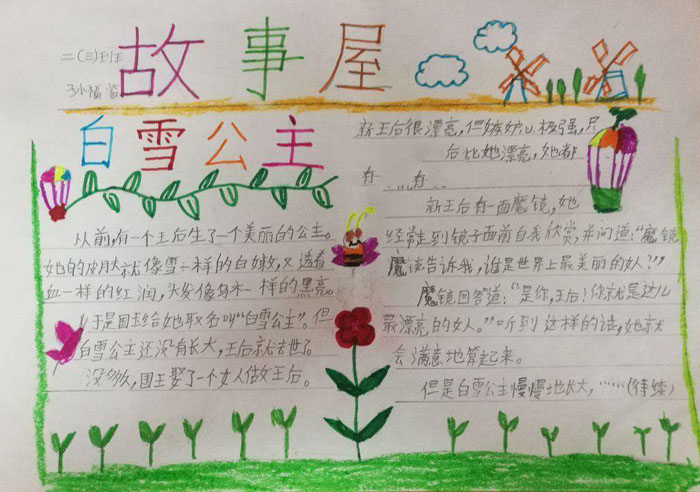 故事屋
二(三)班
白雪公主
从前,有一个王后生了一个美丽的公主。
她的皮肤就像雪一样的白嫩,又透着
血一样的红润,头发像乌木一样的黑亮。
于是国王给她取名叫“白雪公主”。但
白雪公主还没有长大,王后就去世了。
没多久,国王娶了一个女人做王后。
新王后很漂亮,但嫉妒心极强,只
后比她漂亮,她都
有
新王后有一面魔镜,她
经常走到镜子面前自我欣赏,并问道:“魔镜
魔镜告诉我,谁是世界上最美丽的女人?”
魔镜回答道:“是你,王后!你就是这儿
最漂亮的女人。”听到这样的话,她就
会满意地笑起来。
但是白雪公主慢慢地长大,……(待续)